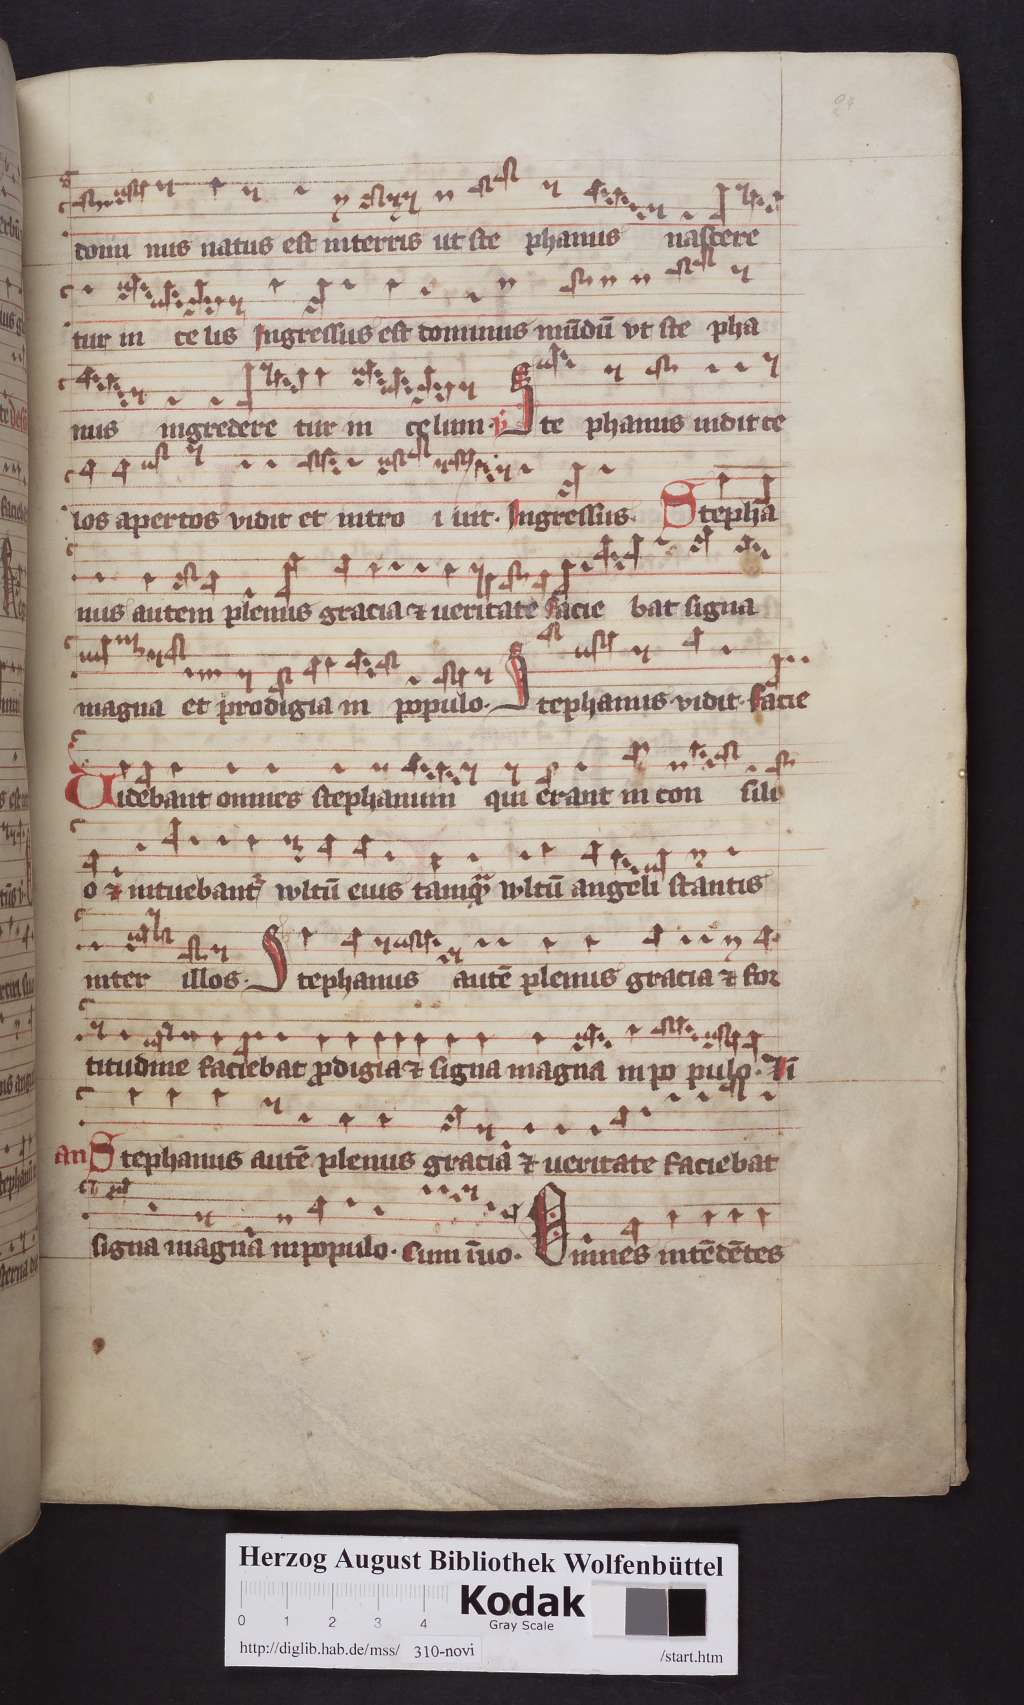 domi nus natus est in terris ut ste phanus nascere
tur in ce lis Ingressus est dominus mūdū vt ste pha
nus ingredere tur in celum. Ste phanus uidit ce
los apertos vidit et intro i uit. Ingressus. Stephā
nus autem plenus gracia et ueritate facie bat signa
magna et prodigia in populo. Stephanus vidit. facie
Uidebant omnes stephanum qui erant in con sili
o et intuebantr wltū eius tamqua wltū angeli stantis
inter illos. Stephanus autē plenus gracia et for
titudine faciebat pdigia et signa magna in po pulo. Vi
an Stephanus autē plenus gracia et ueritate faciebat
signa magna in populo. Cum iuo. Omnes intēdētes
Herzog August Bibliothek Wolfenbüttel
Kodak
Gray Scale
0 1 2 3 4
http://diglib.hab.de/mss/ 310-novi /start.htm